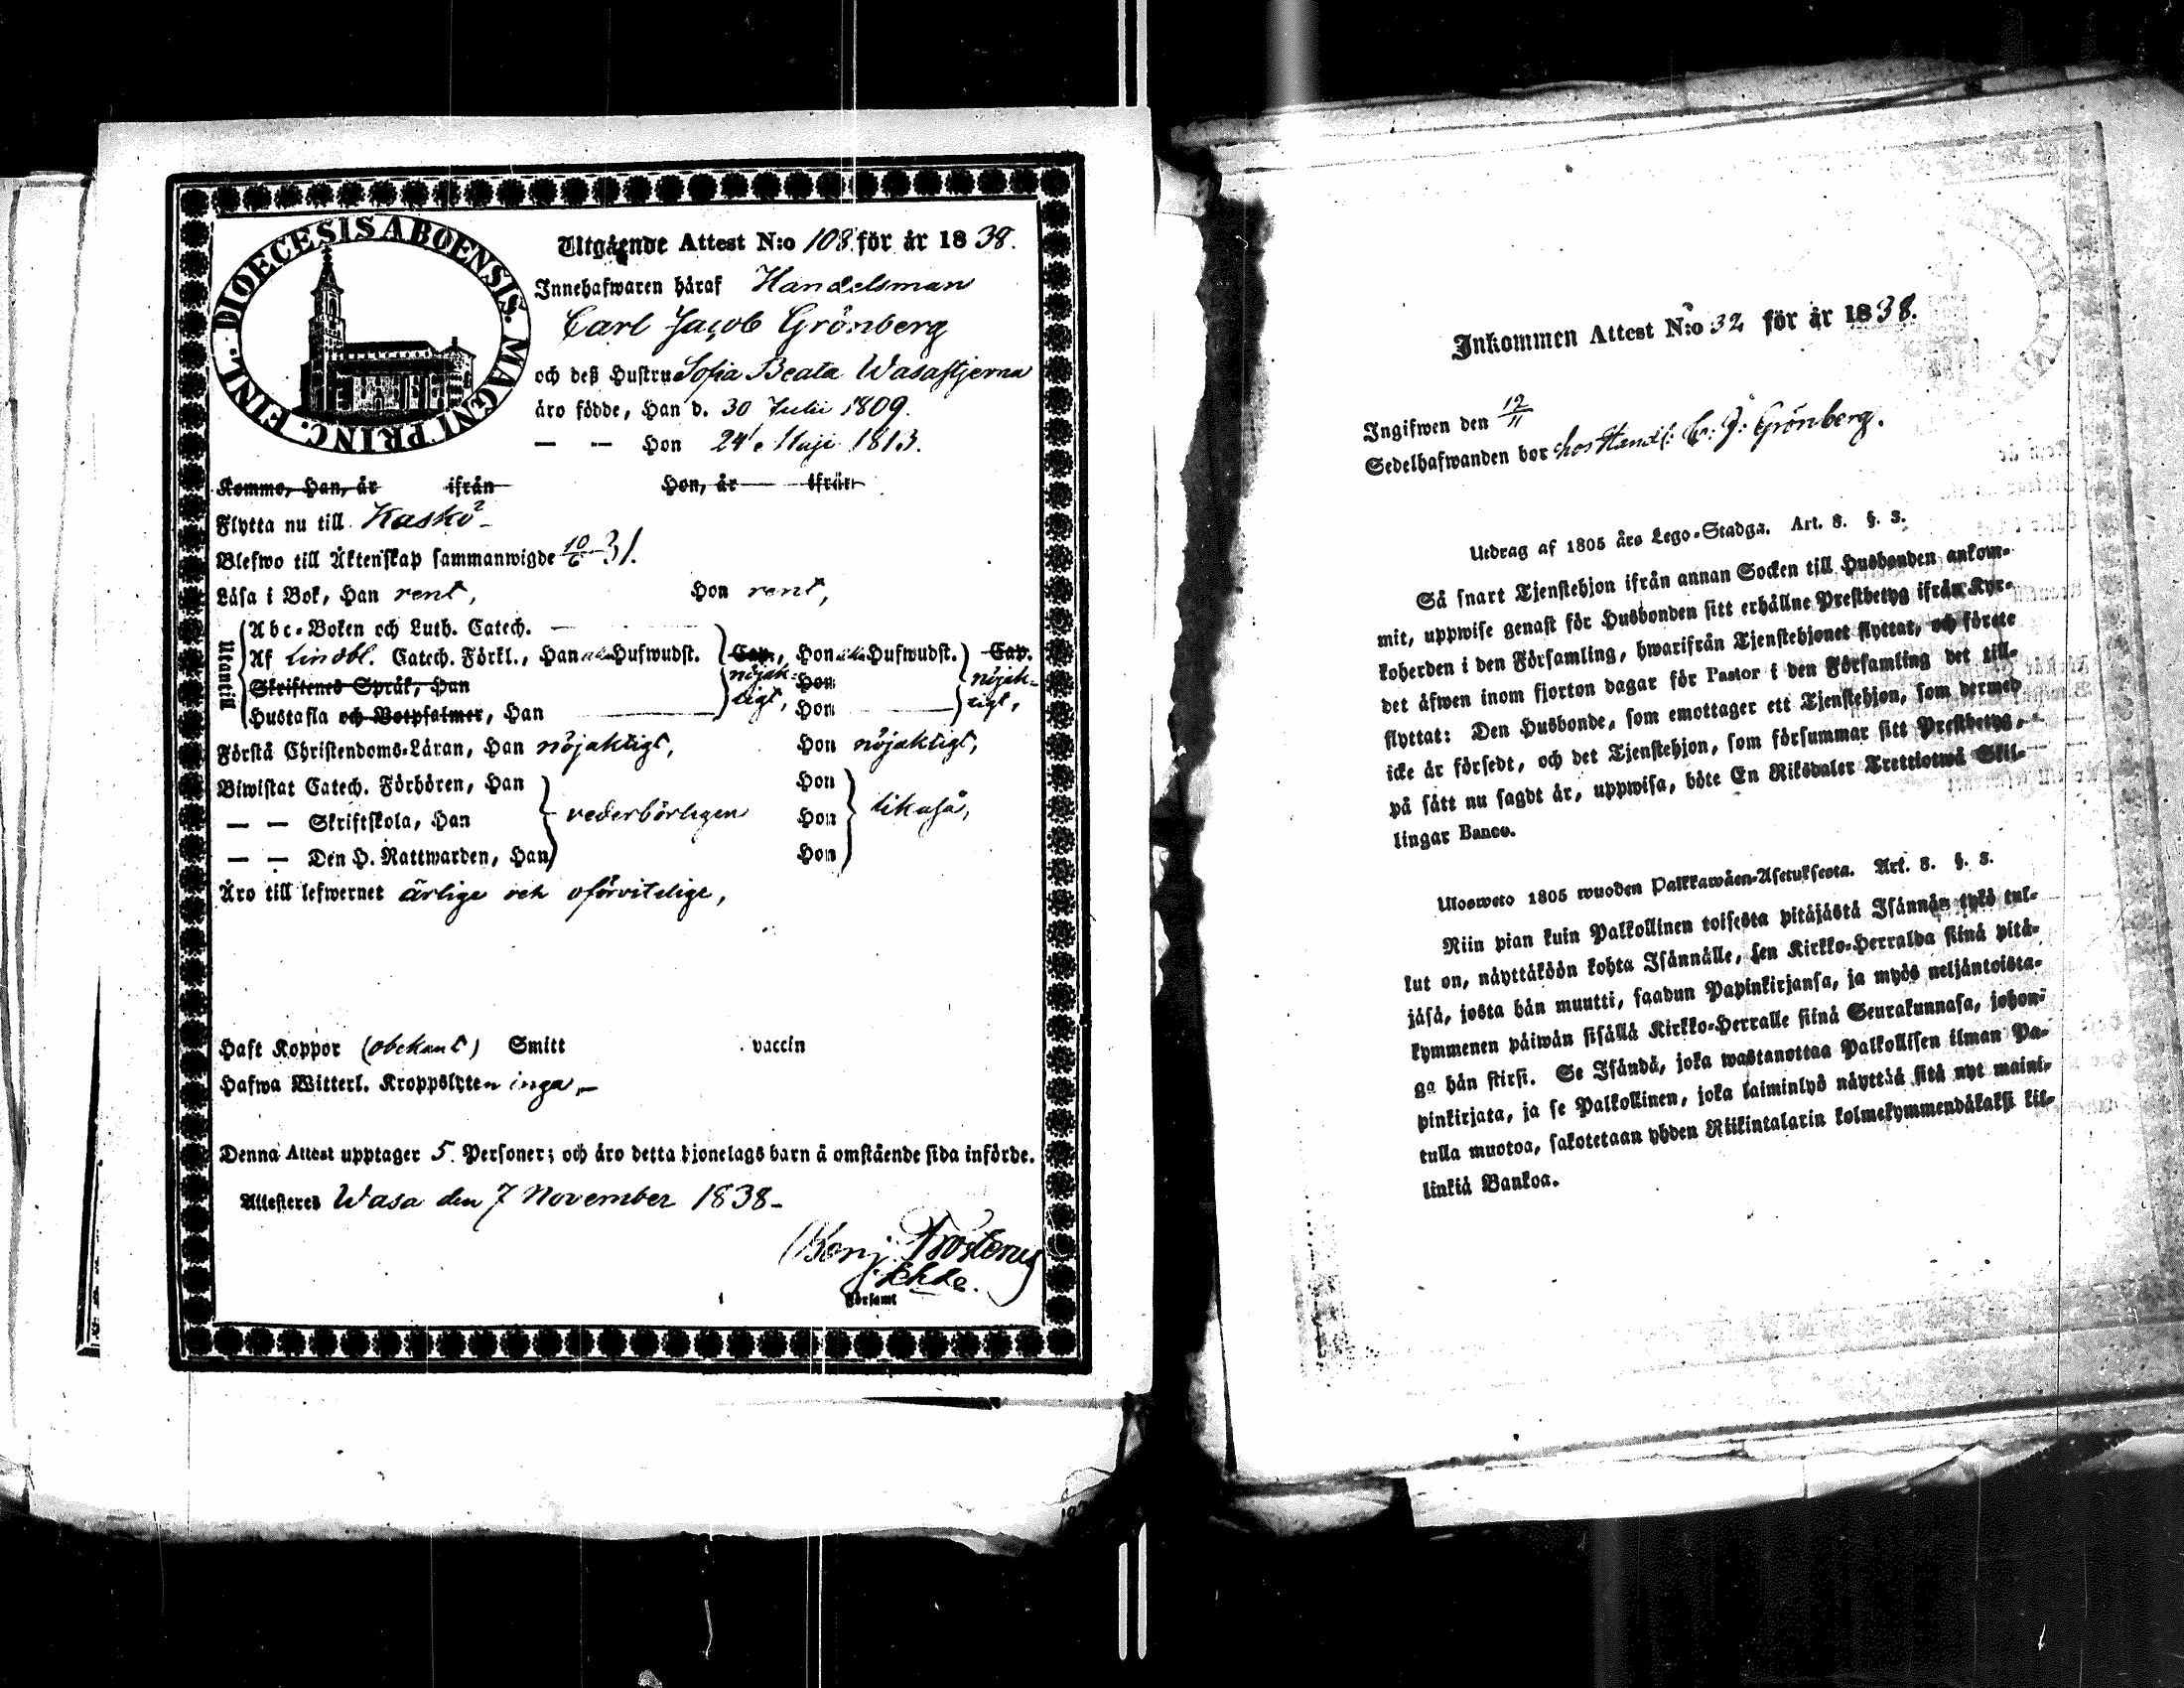 DIOECESIS ABOENSIS. MAGNI PRINC. FINL.
Utgående Attest N:o 108. för år 1838.
Innehafwaren häraf Handelsman
Carl Jacob Grönberg
och deß Hustru Sofia Beata Wasastjerna
äro födde, Han d. 30 Julii 1809.
— — Hon 24 Maji 1813.
Kommo, Han, år ifrån Hon, år ifrån
Flytta nu till Kaskö
Blefwo till Äktenskap sammanwigde 10/6 31.
Läsa i Bok, Han rent, Hon rent,
Utantill
Abc-Boken och Luth. Catech.
Af Lindbl. Catech. Förkl., Han alla Hufwudst. Cap., Hon alla Hufwudst. Cap.
Skriftenes Språk, Han nöjak- Hon nöjak-
Hustafla och Botpsalmer, Han ligt, Hon ligt,
Förstå Christendoms-Läran, Han nöjaktigt, Hon nöjaktigt,
Biwistat Catech. Förhören, Han Hon
— — Skriftskola, Han vederbörligen Hon likaså,
— — Den H. Nattwarden, Han Hon
Äro till lefwernet ärlige och oförvitelige,
Haft Koppor (obekant) Smitt vaccin
Hafwa Witterl. Kroppslyten inga,
Denna Attest upptager 5. Personer; och äro detta hjonelags barn å omstående sida införde.
Attesteras Wasa den 7 November 1838
Benj. Frosterus
Församl
Inkommen Attest N:o 32 för år 1838.
Ingifwen den 12/11
Sedelhafwanden bor hos Handl: C: J: Grönberg.
Utdrag af 1805 års Lego-Stadga. Art. 8. §. 3.
Så snart Tjenstehjon ifrån annan Socken till Husbonden ankom-
mit, uppwise genast för Husbonden sitt erhållne Prestbetyg ifrån Kyr-
koherden i den Församling, hwarifrån Tjenstehjonet flyttat, och förete
det äfwen inom fjorton dagar för Pastor i den Församling det till-
flyttat: Den Husbonde, som emottager ett Tjenstehjon, som dermed
icke är försedt, och det Tjenstehjon, som försummar sitt Prestbetyg,
på sätt nu sagdt är, uppwisa, böte En Riksdaler Trettiotwå Skil-
lingar Banco.
Uloswеto 1805 wuoden Palkkawäen-Asetuksesta. Art. 8. §. 3.
Niin pian kuin Palkollinen toisesta pitäjästä Isännän tykö tul-
lut on, näyttäköön kohta Isännälle, sen Kirkko-Herralda siinä pitä-
jäsä, josta hän muutti, saadun Papinkirjansa, ja myös neljäntoista-
kymmenen päiwän sisällä Kirkko-Herralle siinä Seurakunnasa, johon-
ga hän siirsi. Se Isändä, joka wastanottaa Palkollisen ilman Pa-
pinkirjata, ja se Palkollinen, joka laiminlyö näyttää sitä nyt maini-
tulla muotoa, sakotetaan yhden Riikintalarin kolmekymmendäkaksi kil-
linkiä Bankoa.